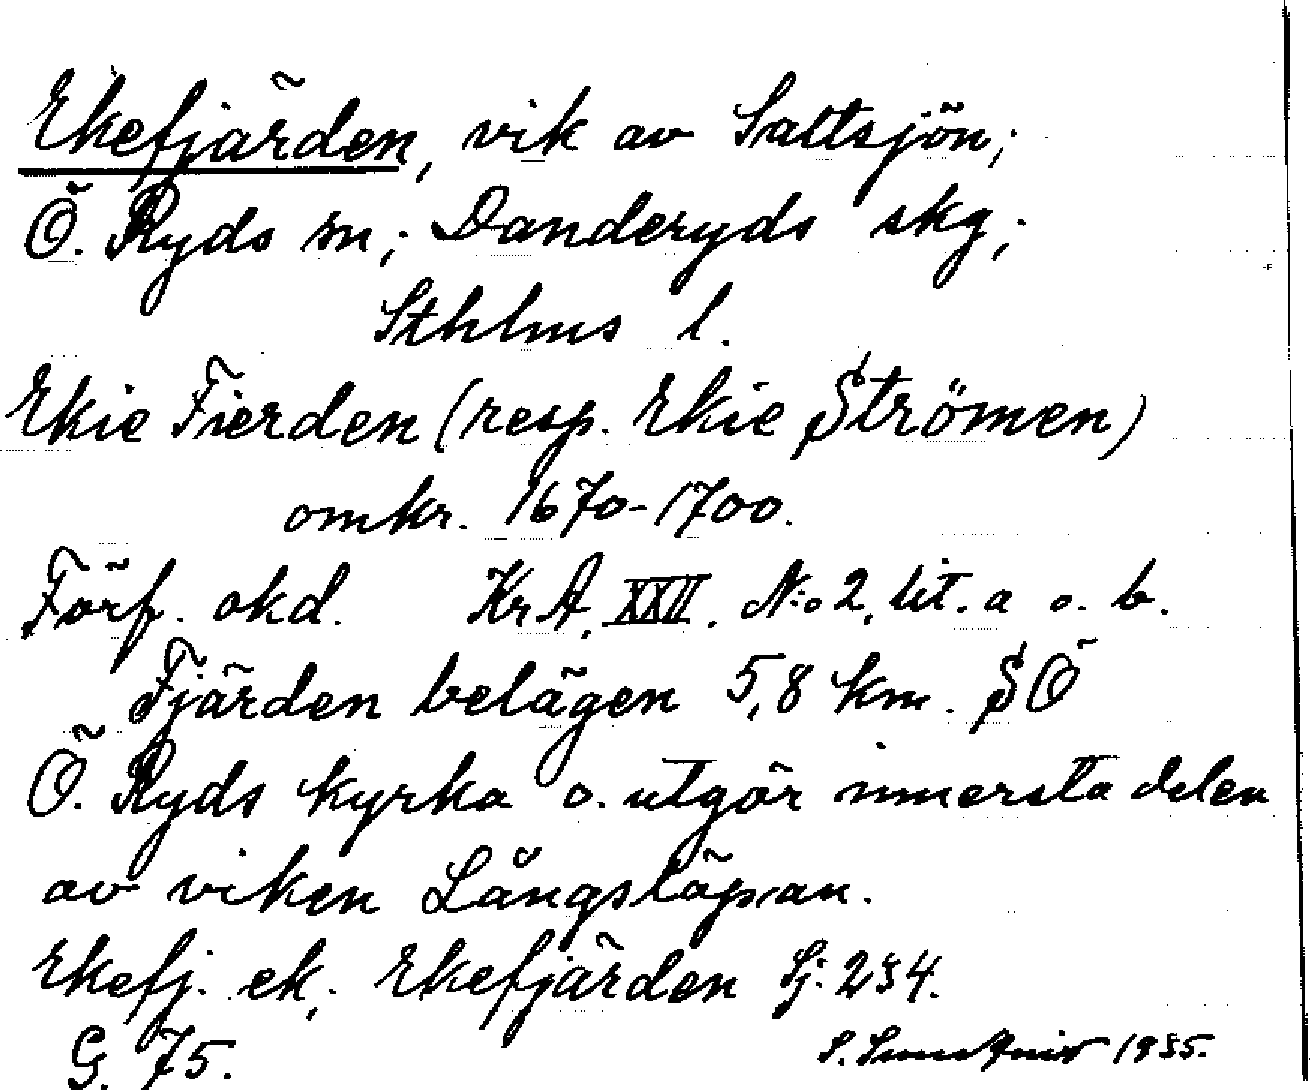 Ekefjärden, vik av Saltsjön;
Ö. Ryds sn; Danderyds skg;
Sthlms l.
Ekie Fierden (resp. Ekie Strömen)
omkr. 1670-1700.
Förf. okd. KrA. XXII. N:o 2, lit. a o. b.
Fjärden belägen 5,8 km. SÖ
Ö. Ryds kyrka o. utgör innersta delen
av viken Långslöpan.
Ekefj. ek; Ekefjärden Sj. 234.
G. 75.
S. 1935.